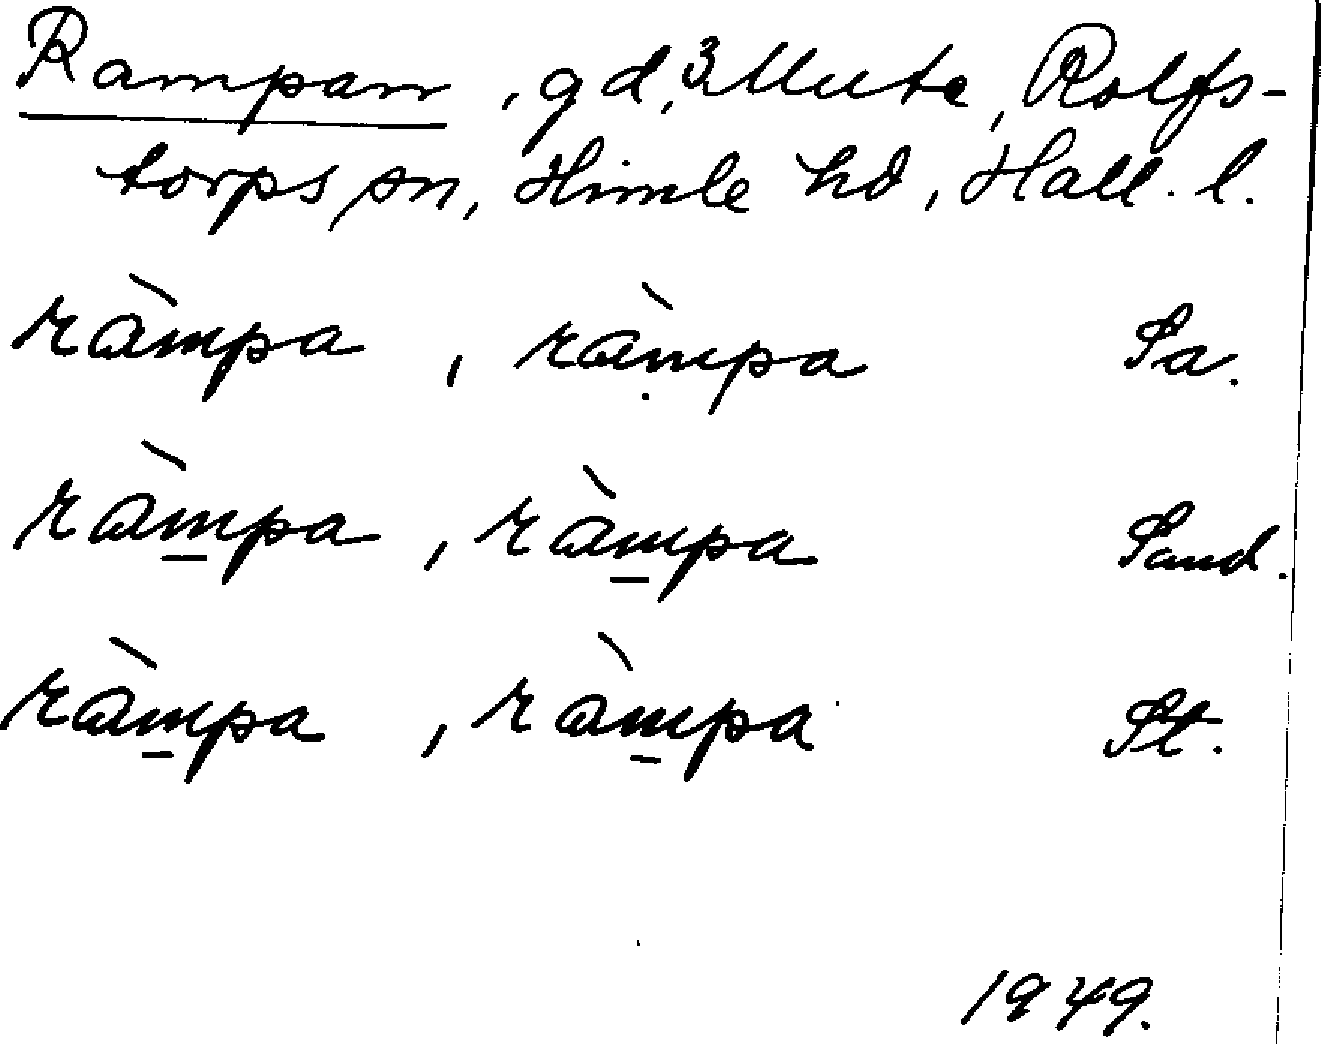 Rampan, gd, 3 Mute, Rolfs-
torps sn, Himle hd, Hall. l.
ràmpa, ràmpa Sa.
ràm̱pa, ràm̱pa Sand.
ràm̱pa, ràm̱pa St.
1949.